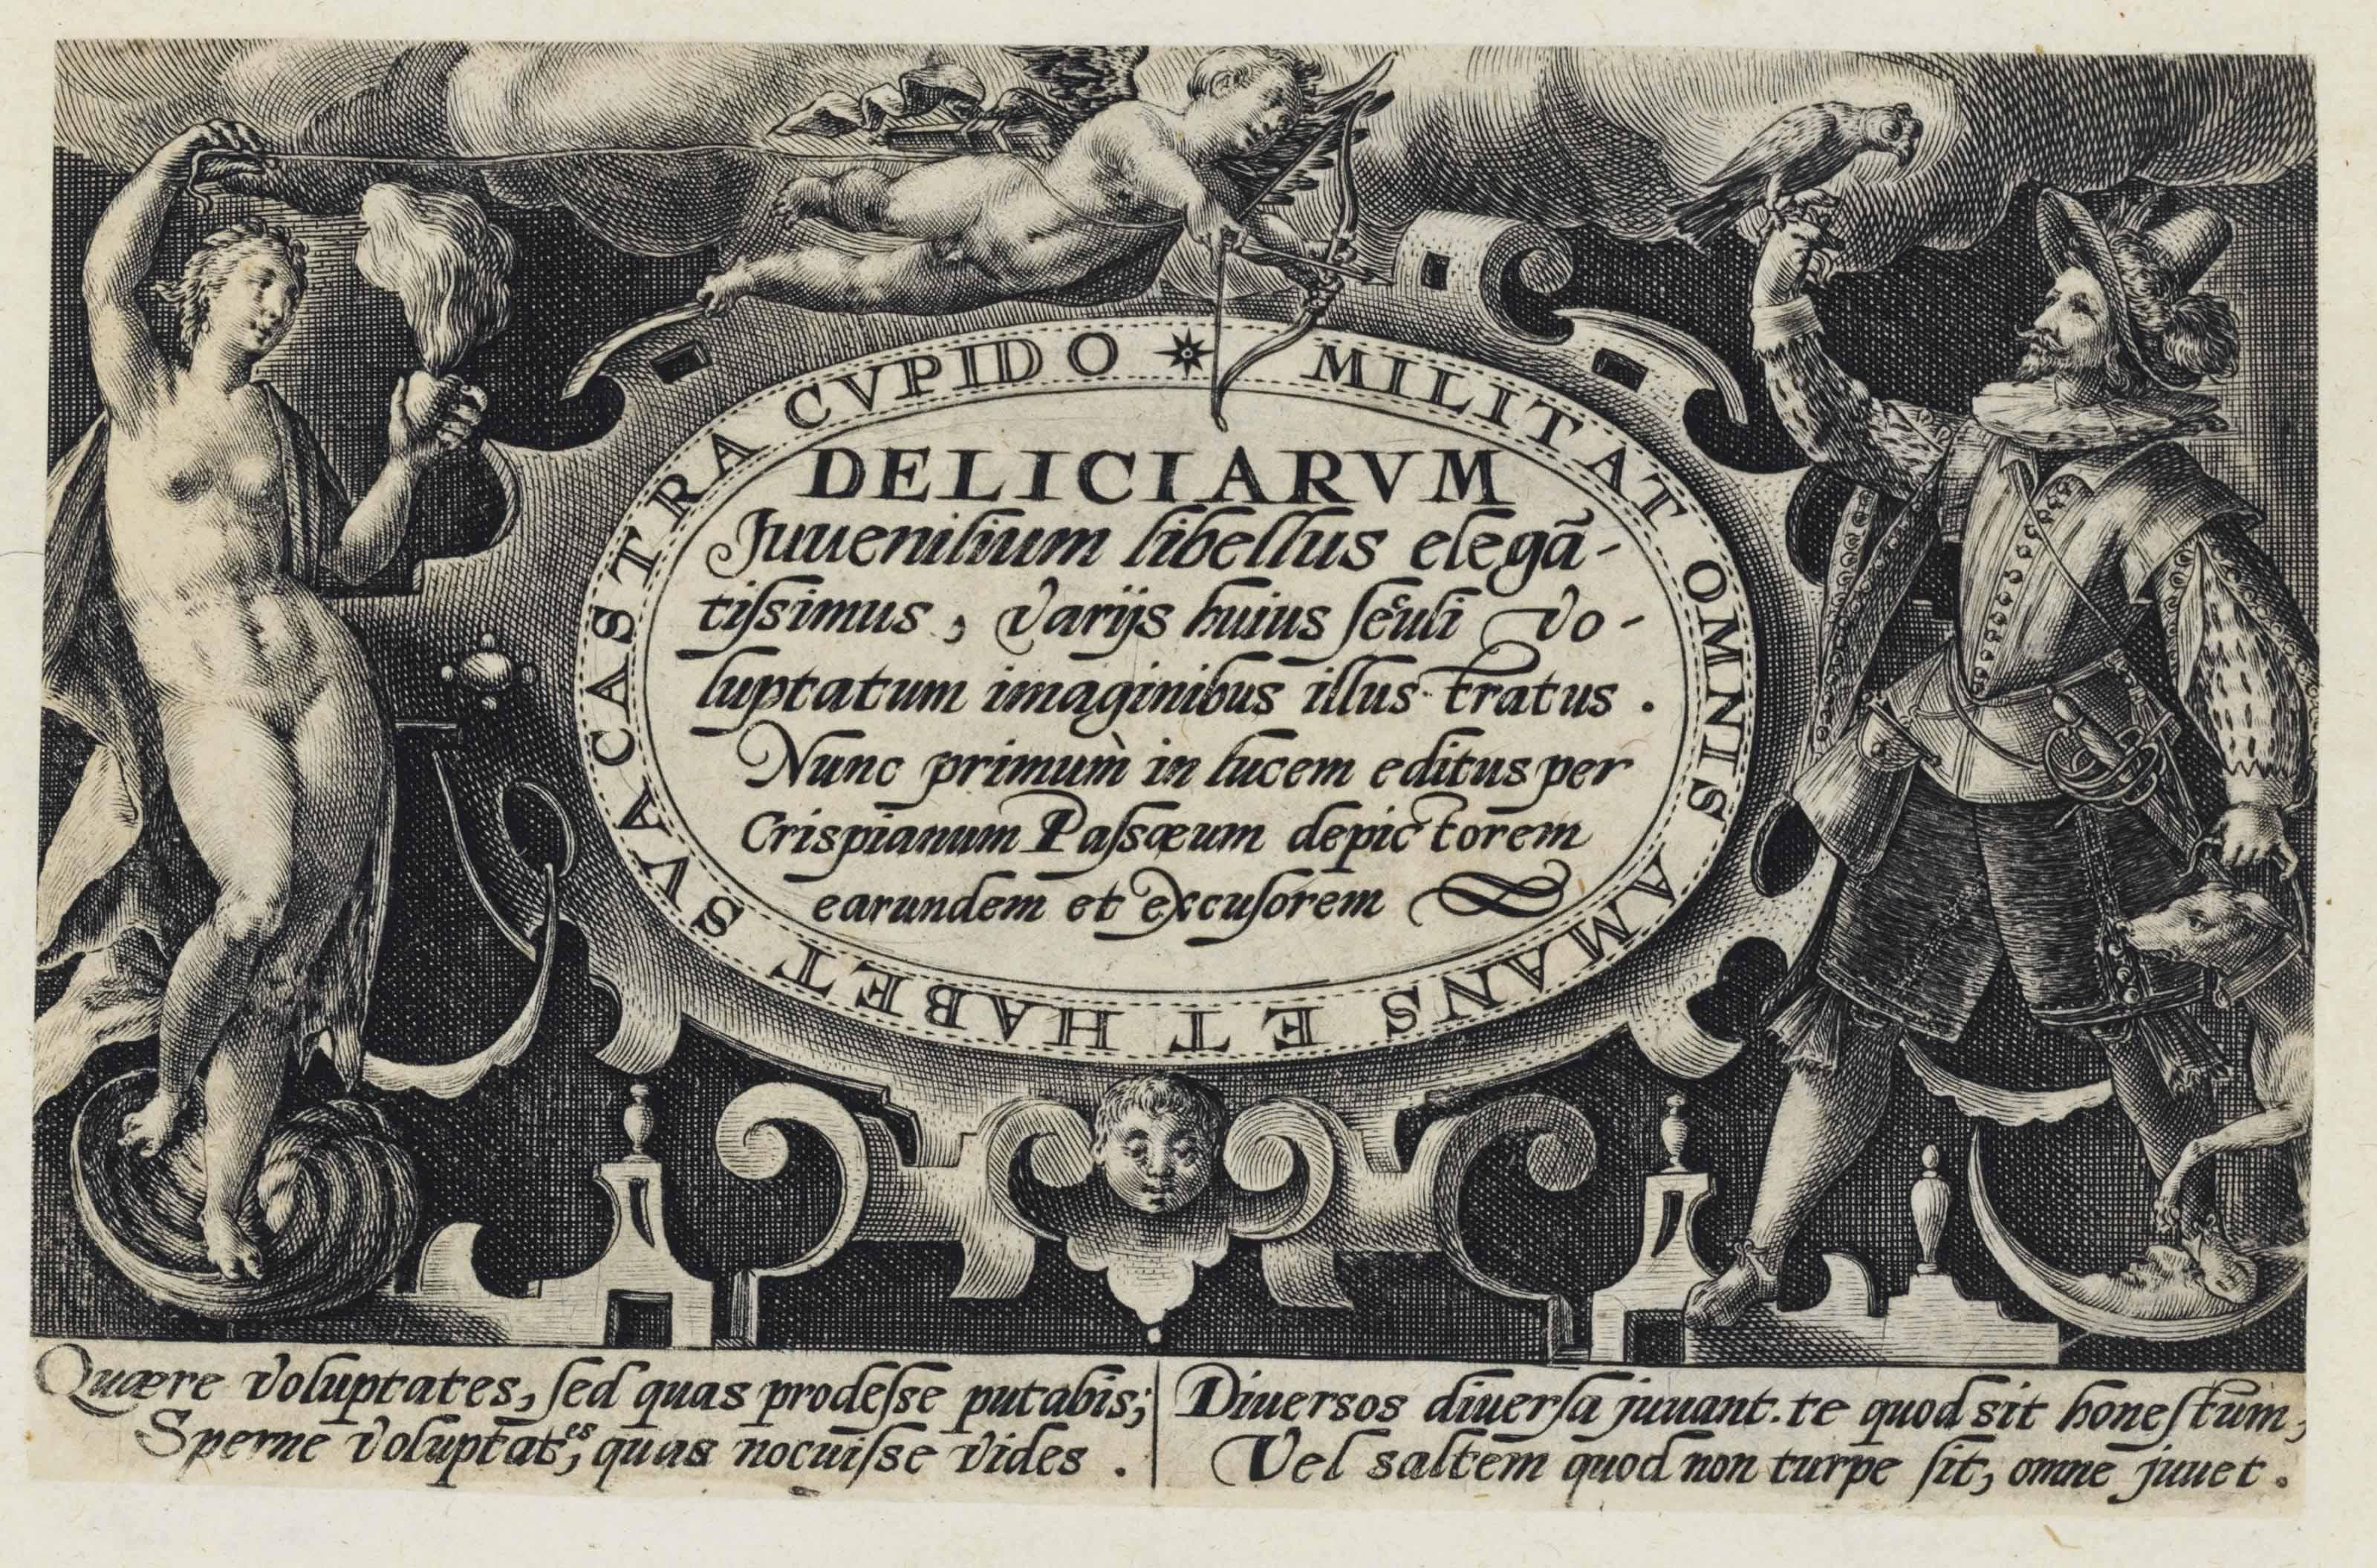 MILITAT OMNIS AMANS ET HABET SVA CASTRA CVPIDO
DELICIARVM
Juuenilium libellus elegã-
tiſsimus, varijs huius ſeculi vo-
luptatum imaginibus illustratus.
Nunc primùm in lucem editus per
Crispianum Paſsæum depictorem
earundem et excuſorem
Quære voluptates, ſed quas prodeſse putabis;
Sperne voluptates, quas nocuiſse vides.
Diuersos diuerſa juuant. te quod sit honeſtum,
Vel saltem quod non turpe ſit, omne juuet.